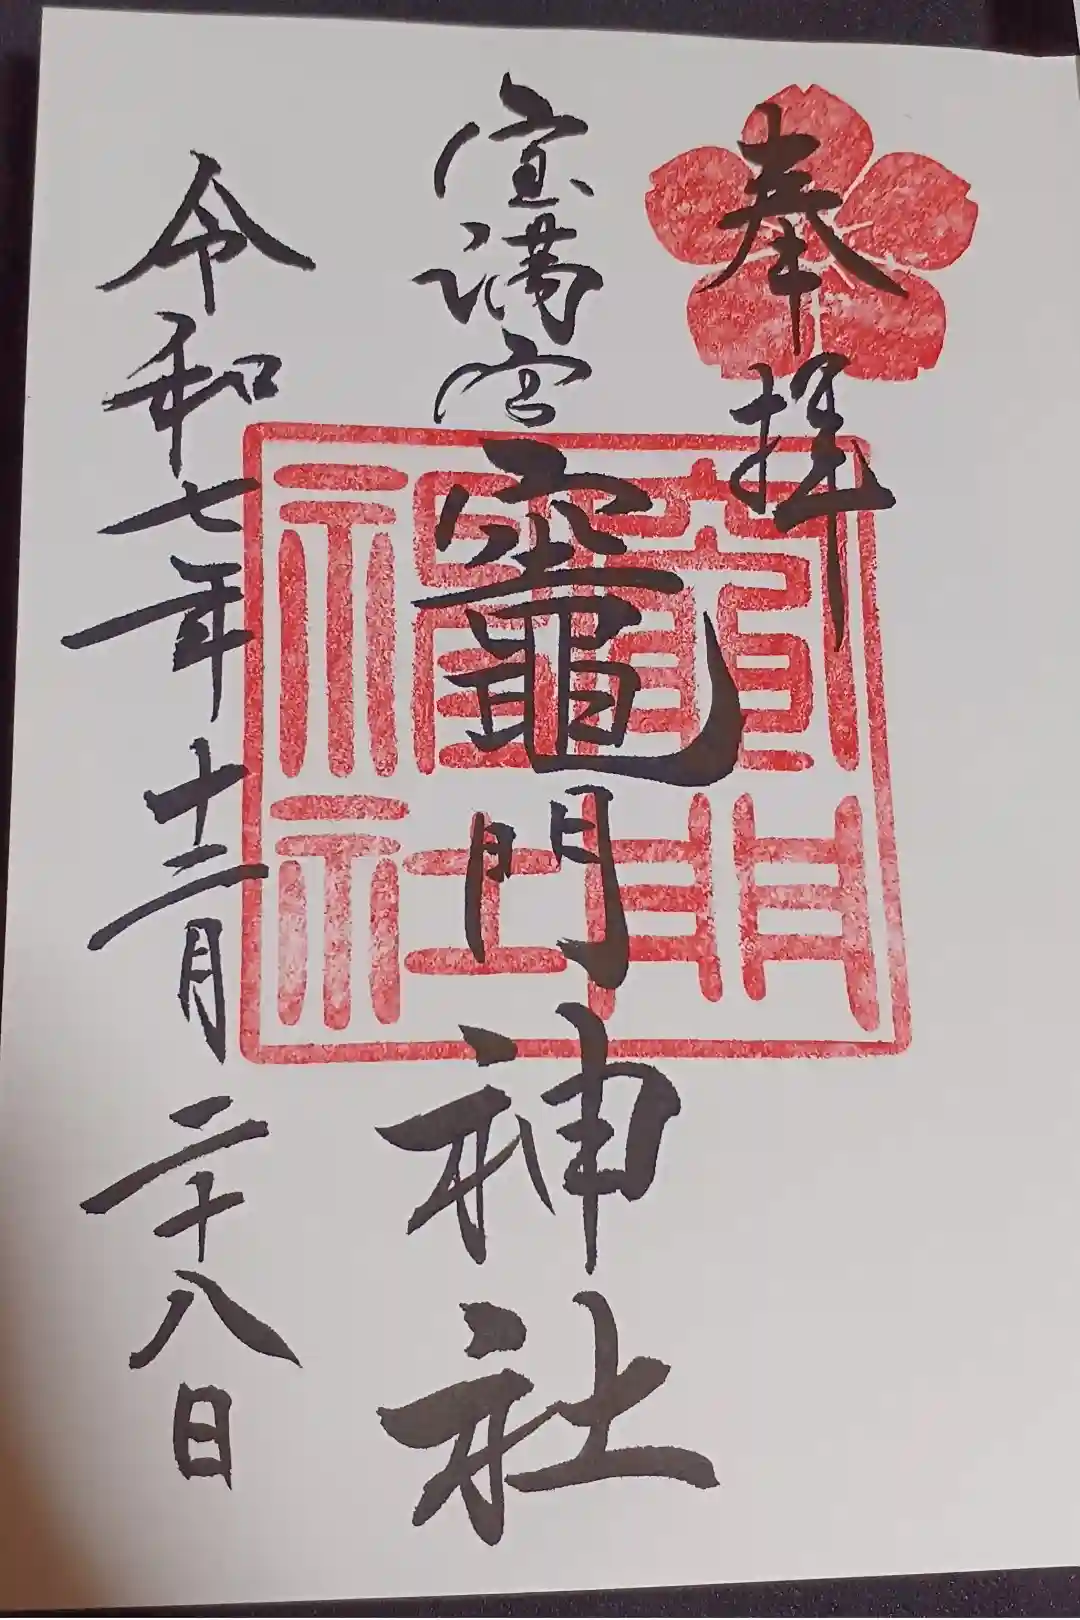 奉拝
宝満宮竈門神社
令和七年十二月二十八日